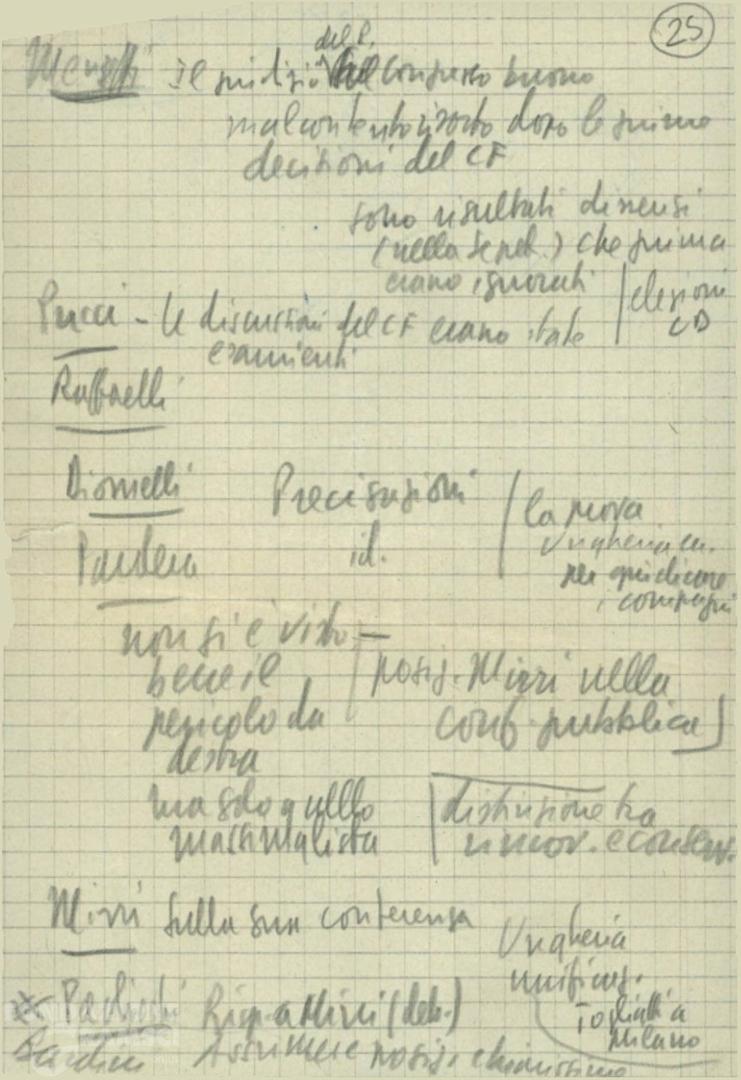 25
del P.
Il giudizio del Congresso buono
malcontento sorto dopo le prime
decisioni del CF
sono risultati dissensi
(nella segret.) che prima
erano ignorati
elezioni
CD
Pucci - le discussioni del CF erano state
esaurienti
Raffaelli
Diomelli Precisazioni
id.
la prova
Ungheria
per giudicare
i compagni
non si è visto —
bene il
pericolo da
destra
ma solo quello
massimalista
posiz. Mirri nella
conf. pubblica
distinzione tra
innov. e conserv.
Mirri sulla sua conferenza
Ungheria
unificaz.
Togliatti a
Milano
Risp. a Mirri (deb.)
Assumere posiz. chiarissime